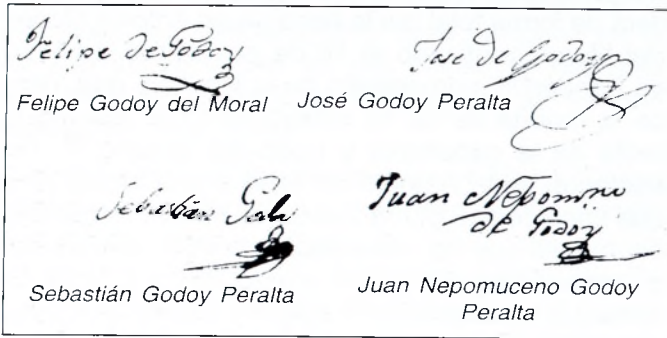 Felipe de Godoy
Felipe Godoy del Moral
Jose De Godoy
José Godoy Peralta
Sebastian
Sebastián Godoy Peralta
Juan Nepomno
de Godoy
Juan Nepomuceno Godoy
Peralta